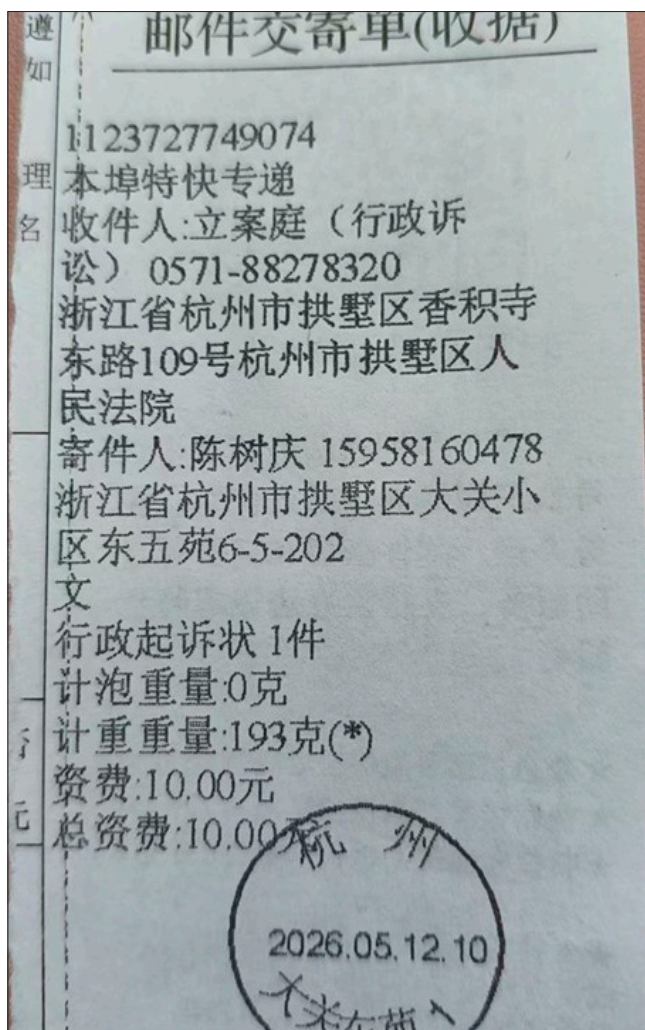 遵
如
理
名
元
邮件交寄单(收据)
1123727749074
本埠特快专递
收件人:立案庭（行政诉
讼） 0571-88278320
浙江省杭州市拱墅区香积寺
东路109号杭州市拱墅区人
民法院
寄件人:陈树庆 15958160478
浙江省杭州市拱墅区大关小
区东五苑6-5-202
文
行政起诉状 1件
计泡重量:0克
计重重量:193克(*)
资费:10.00元
总资费:10.00元
杭 州
2026.05.12.10